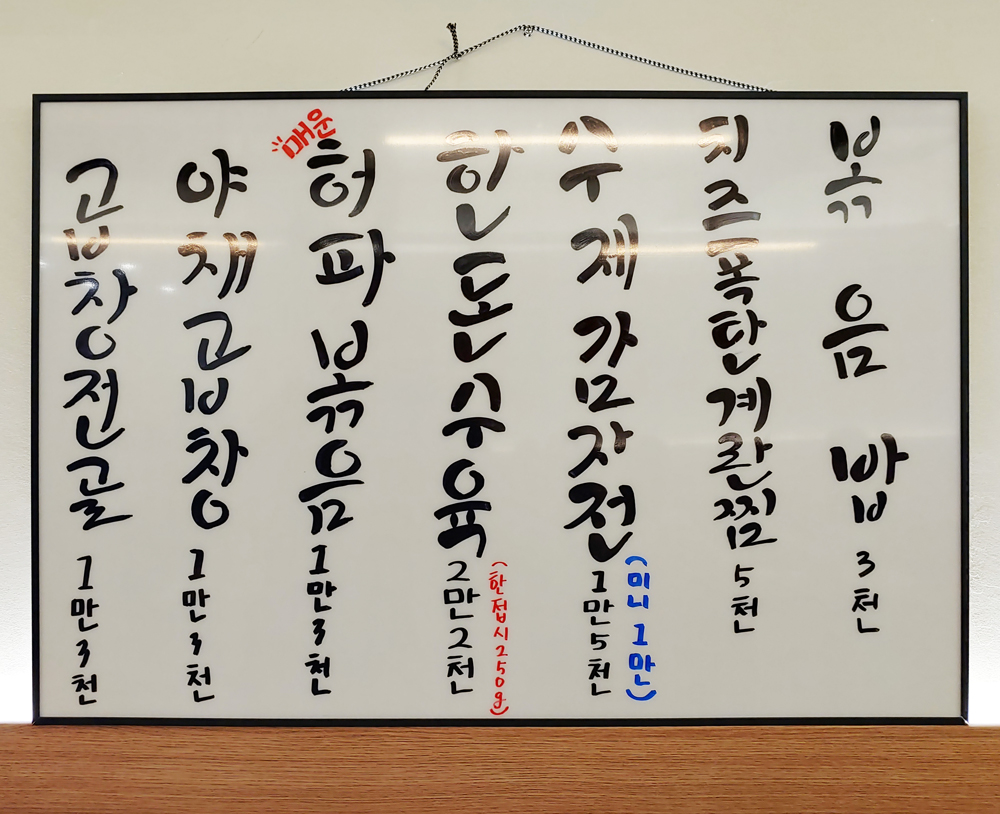 곱창전골 1만3천
야채곱창 1만3천
매운
허파볶음 1만3천
한돈수육 2만2천
(한접시250g)
수제감자전 1만5천
(미니 1만)
치즈폭탄계란찜 5천
볶음밥 3천